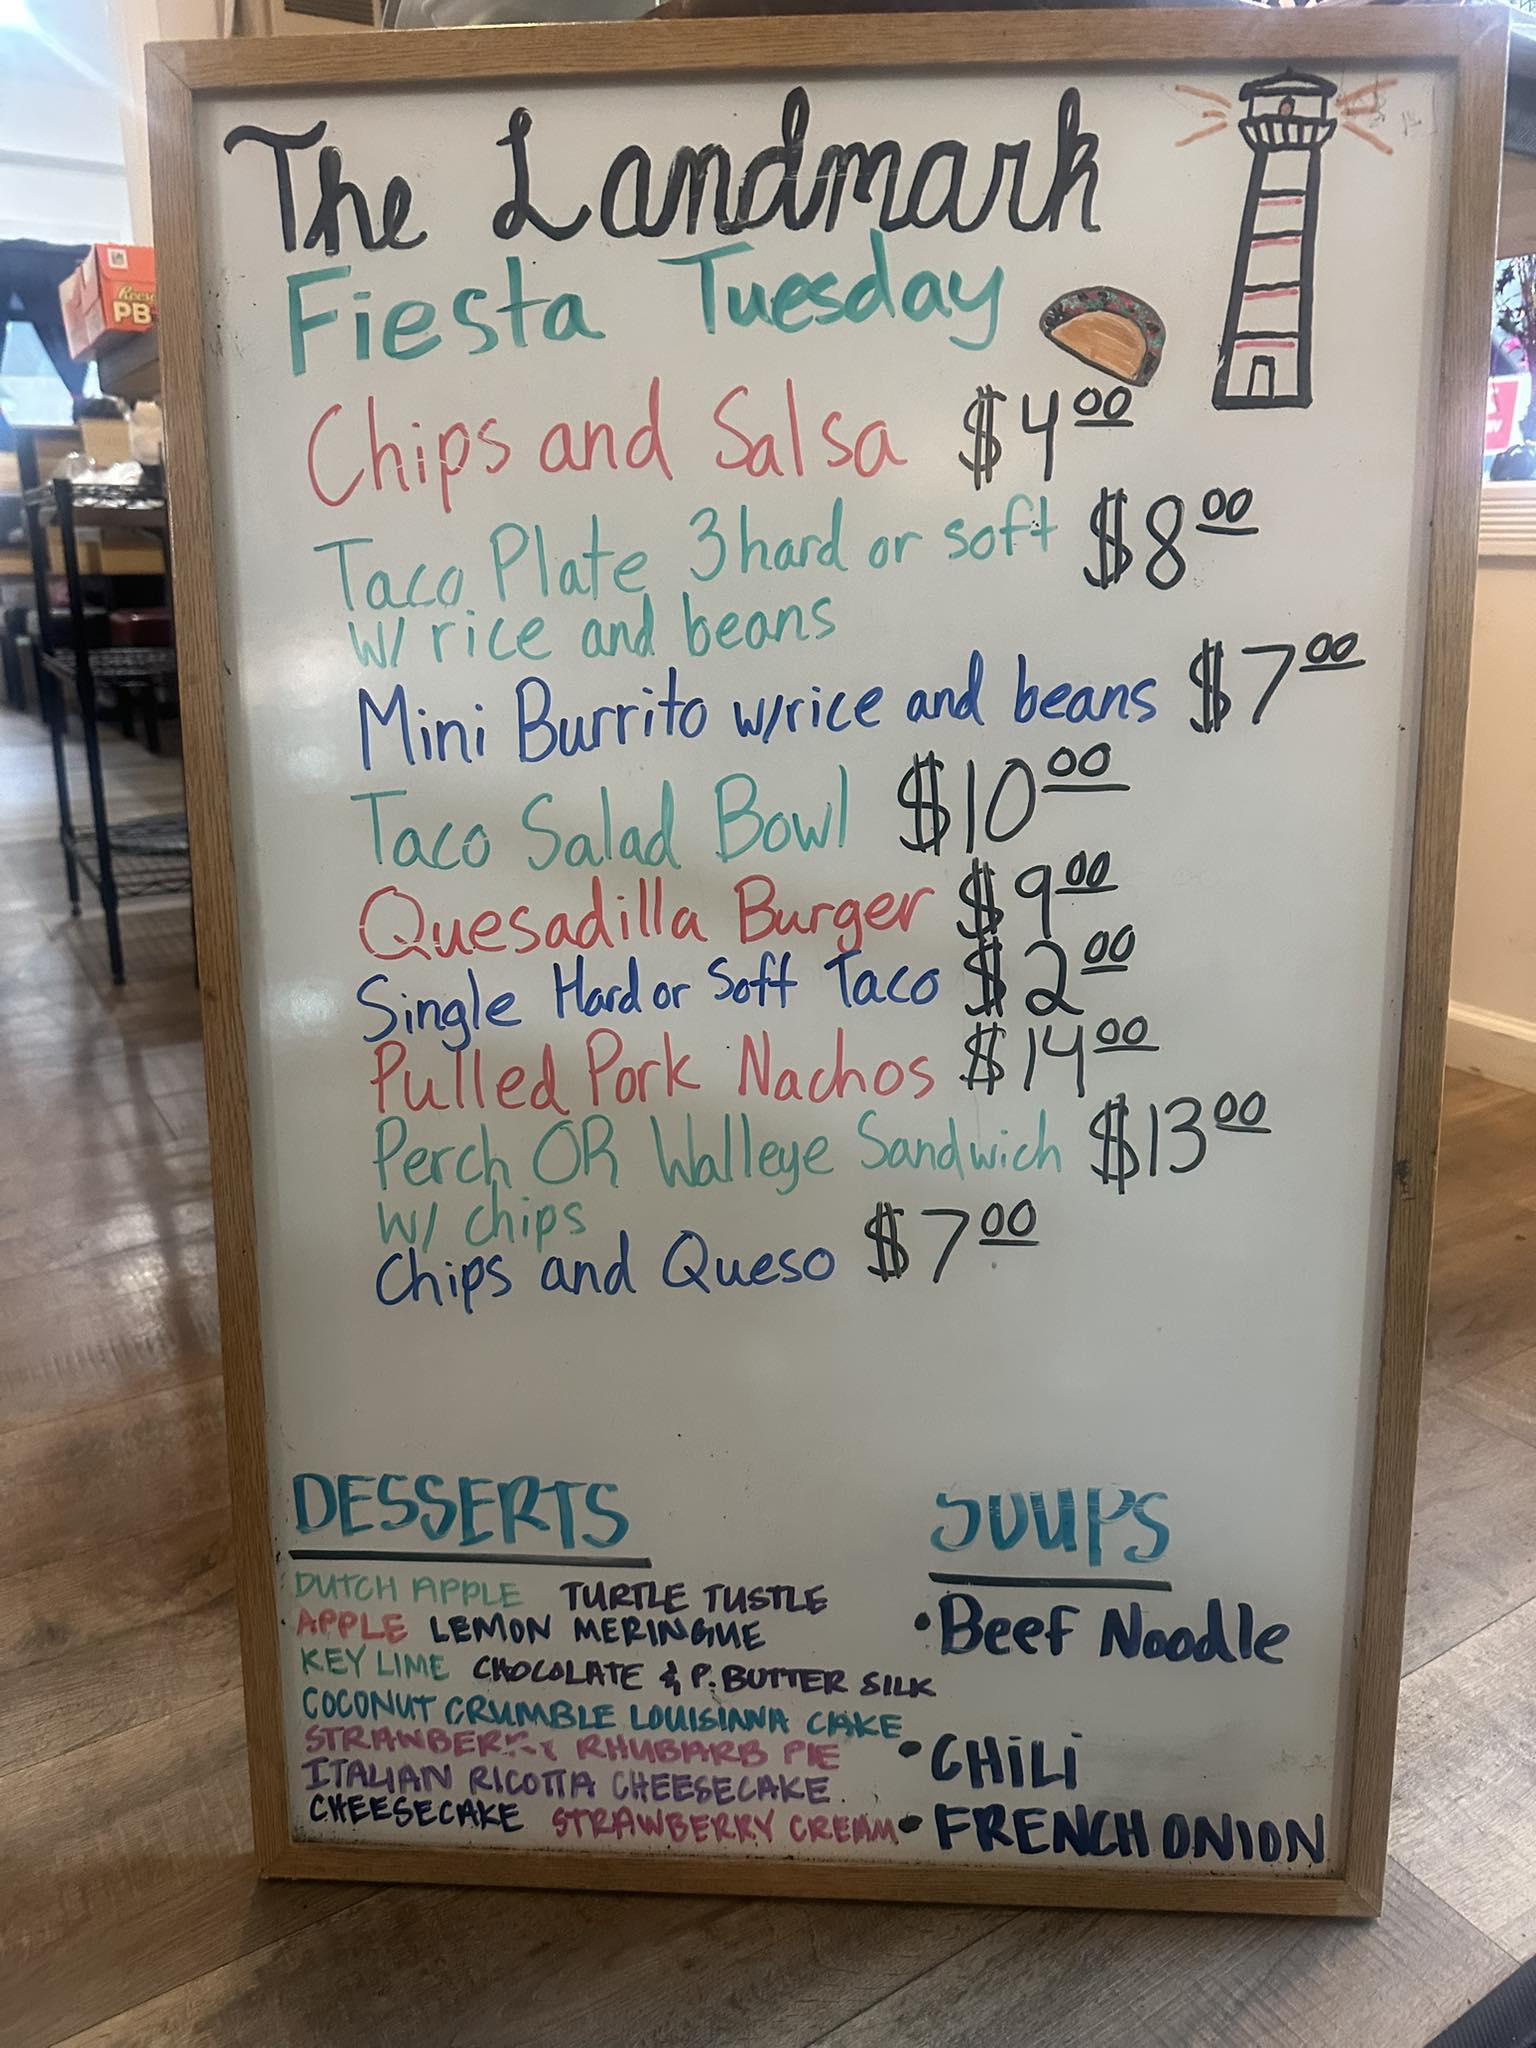 The Landmark
Fiesta Tuesday
Chips and Salsa $4.00
Taco Plate 3 hard or soft $8.00
w/ rice and beans
Mini Burrito w/rice and beans $7.00
Taco Salad Bowl $10.00
Quesadilla Burger $9.00
Single Hard or Soft Taco $2.00
Pulled Pork Nachos $14.00
Perch OR Walleye Sandwich $13.00
w/ chips
Chips and Queso $7.00
DESSERTS
DUTCH APPLE TURTLE TUSTLE
APPLE LEMON MERINGUE
KEY LIME CHOCOLATE & P. BUTTER SILK
COCONUT CRUMBLE LOUISIANNA CAKE
STRAWBERRY RHUBARB PIE
ITALIAN RICOTTA CHEESECAKE
CHEESECAKE STRAWBERRY CREAM
SOUPS
• Beef Noodle
• CHiLi
• FRENCH ONION
Reese
PB